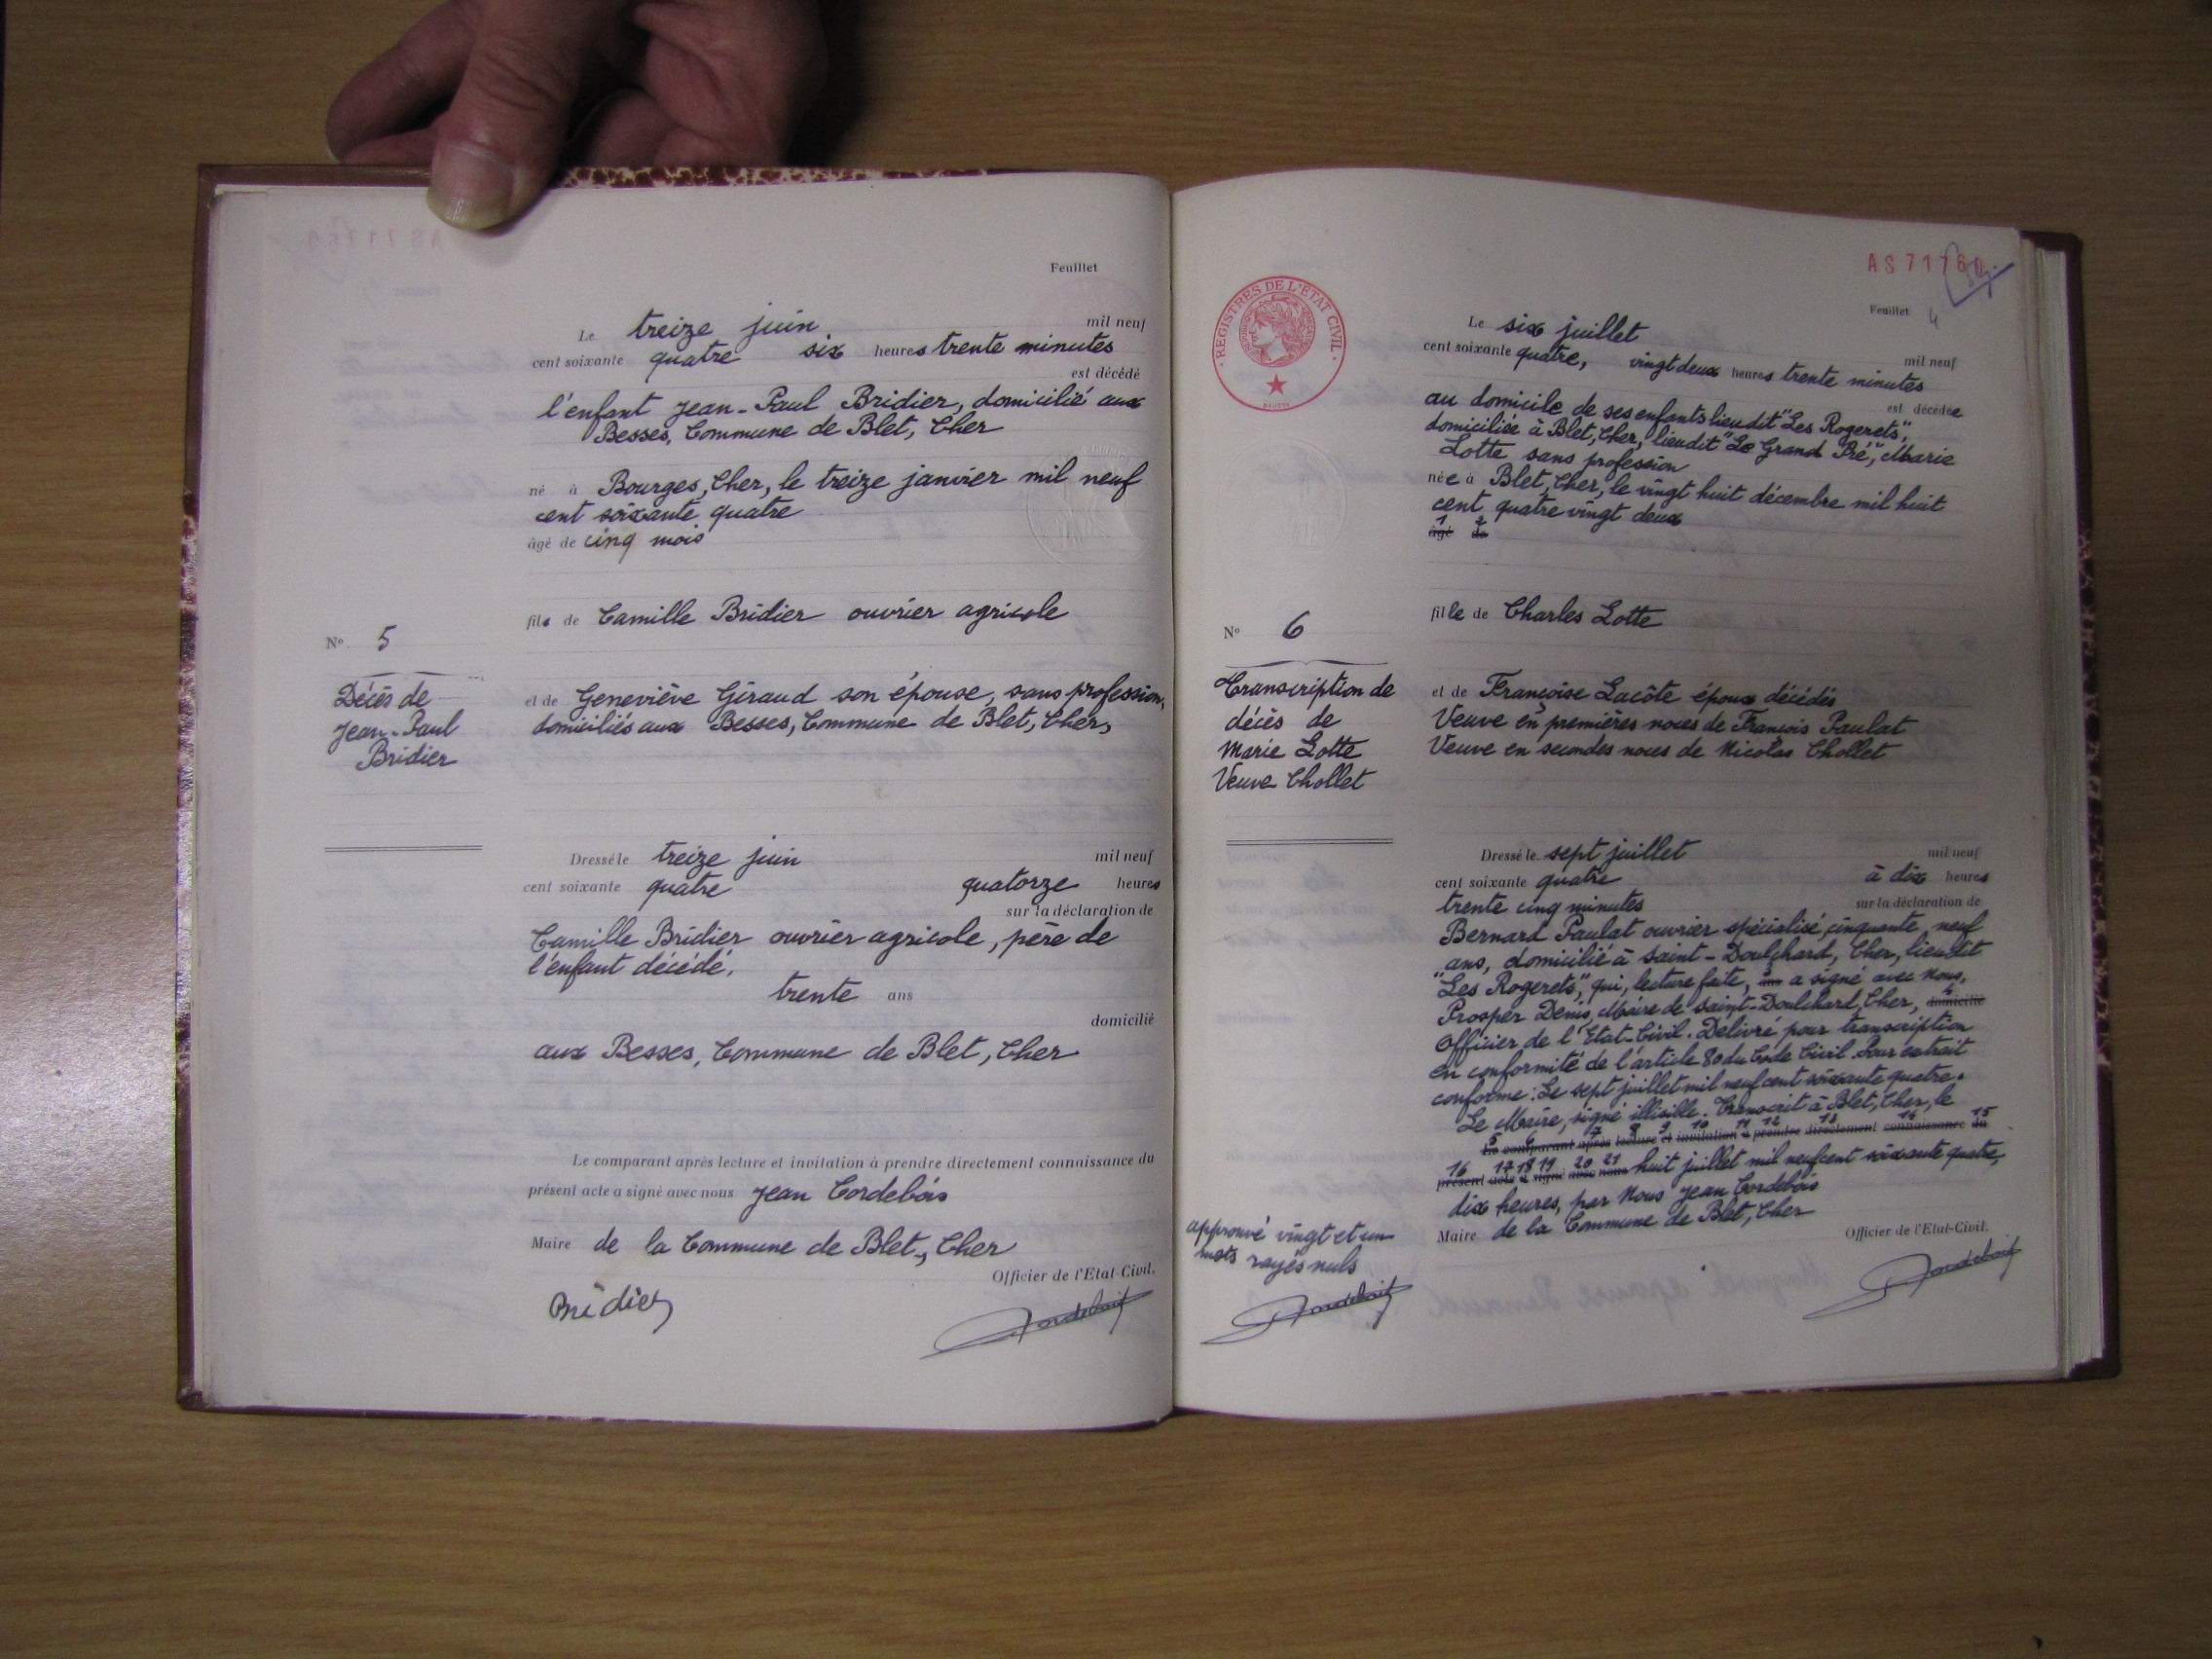 Feuillet
Le treize juin mil neuf
cent soixante quatre six heures trente minutes
est décédé
l'enfant Jean-Paul Bridier, domicilié aux
Besses, Commune de Blet, Cher
né à Bourges, Cher, le treize janvier mil neuf
cent soixante quatre
âgé de cinq mois
fils de Camille Bridier ouvrier agricole
N° 5
Décès de
Jean-Paul
Bridier
et de Geneviève Giraud son épouse, sans profession,
domiciliés aux Besses, Commune de Blet, Cher,
Dressé le treize juin mil neuf
cent soixante quatre quatorze heures
sur la déclaration de
Camille Bridier ouvrier agricole, père de
l'enfant décédé,
trente ans
domicilié
aux Besses, Commune de Blet, Cher
Le comparant après lecture et invitation à prendre directement connaissance du
présent acte a signé avec nous Jean Cordebois
Maire de la Commune de Blet, Cher
Officier de l'Etat-Civil.
Bridier
REGISTRES DE L'ETAT CIVIL
AS 71760
Feuillet 4
Le six juillet mil neuf
cent soixante quatre, vingt deux heures trente minutes
est décédée
au domicile de ses enfants lieudit "Les Rogerets",
domiciliée à Blet, Cher, lieudit "Le Grand Pré", Marie
Lotte sans profession
née à Blet, Cher, le vingt huit décembre mil huit
cent quatre vingt deux
1 2
âgé de
fille de Charles Lotte
N° 6
Transcription de
décès de
Marie Lotte
Veuve Chollet
et de Françoise Lacôte époux décédés
Veuve en premières noces de François Paulat
Veuve en secondes noces de Nicolas Chollet
Dressé le sept juillet mil neuf
cent soixante quatre à dix heures
trente cinq minutes sur la déclaration de
Bernard Paulat ouvrier spécialisé cinquante neuf
ans, domicilié à Saint-Doulchard, Cher, lieudit
"Les Rogerets", qui, lecture faite, a signé avec Nous,
Prosper Denis, Maire de Saint-Doulchard, Cher, domicilié
Officier de l'Etat-Civil. Délivré pour transcription
en conformité de l'article 80 du Code Civil. Pour extrait
conforme: Le sept juillet mil neuf cent soixante quatre.
Le Maire, signé illisible. Transcrit à Blet, Cher, le
5 6 7 8 9 10 11 12 13 14 15
Le comparant après lecture et invitation à prendre directement connaissance du
16 17 18 19 20 21
présent acte a signé avec nous huit juillet mil neuf cent soixante quatre,
dix heures, par Nous Jean Cordebois
Maire de la Commune de Blet, Cher
Officier de l'Etat-Civil.
approuvé vingt et un
mots rayés nuls